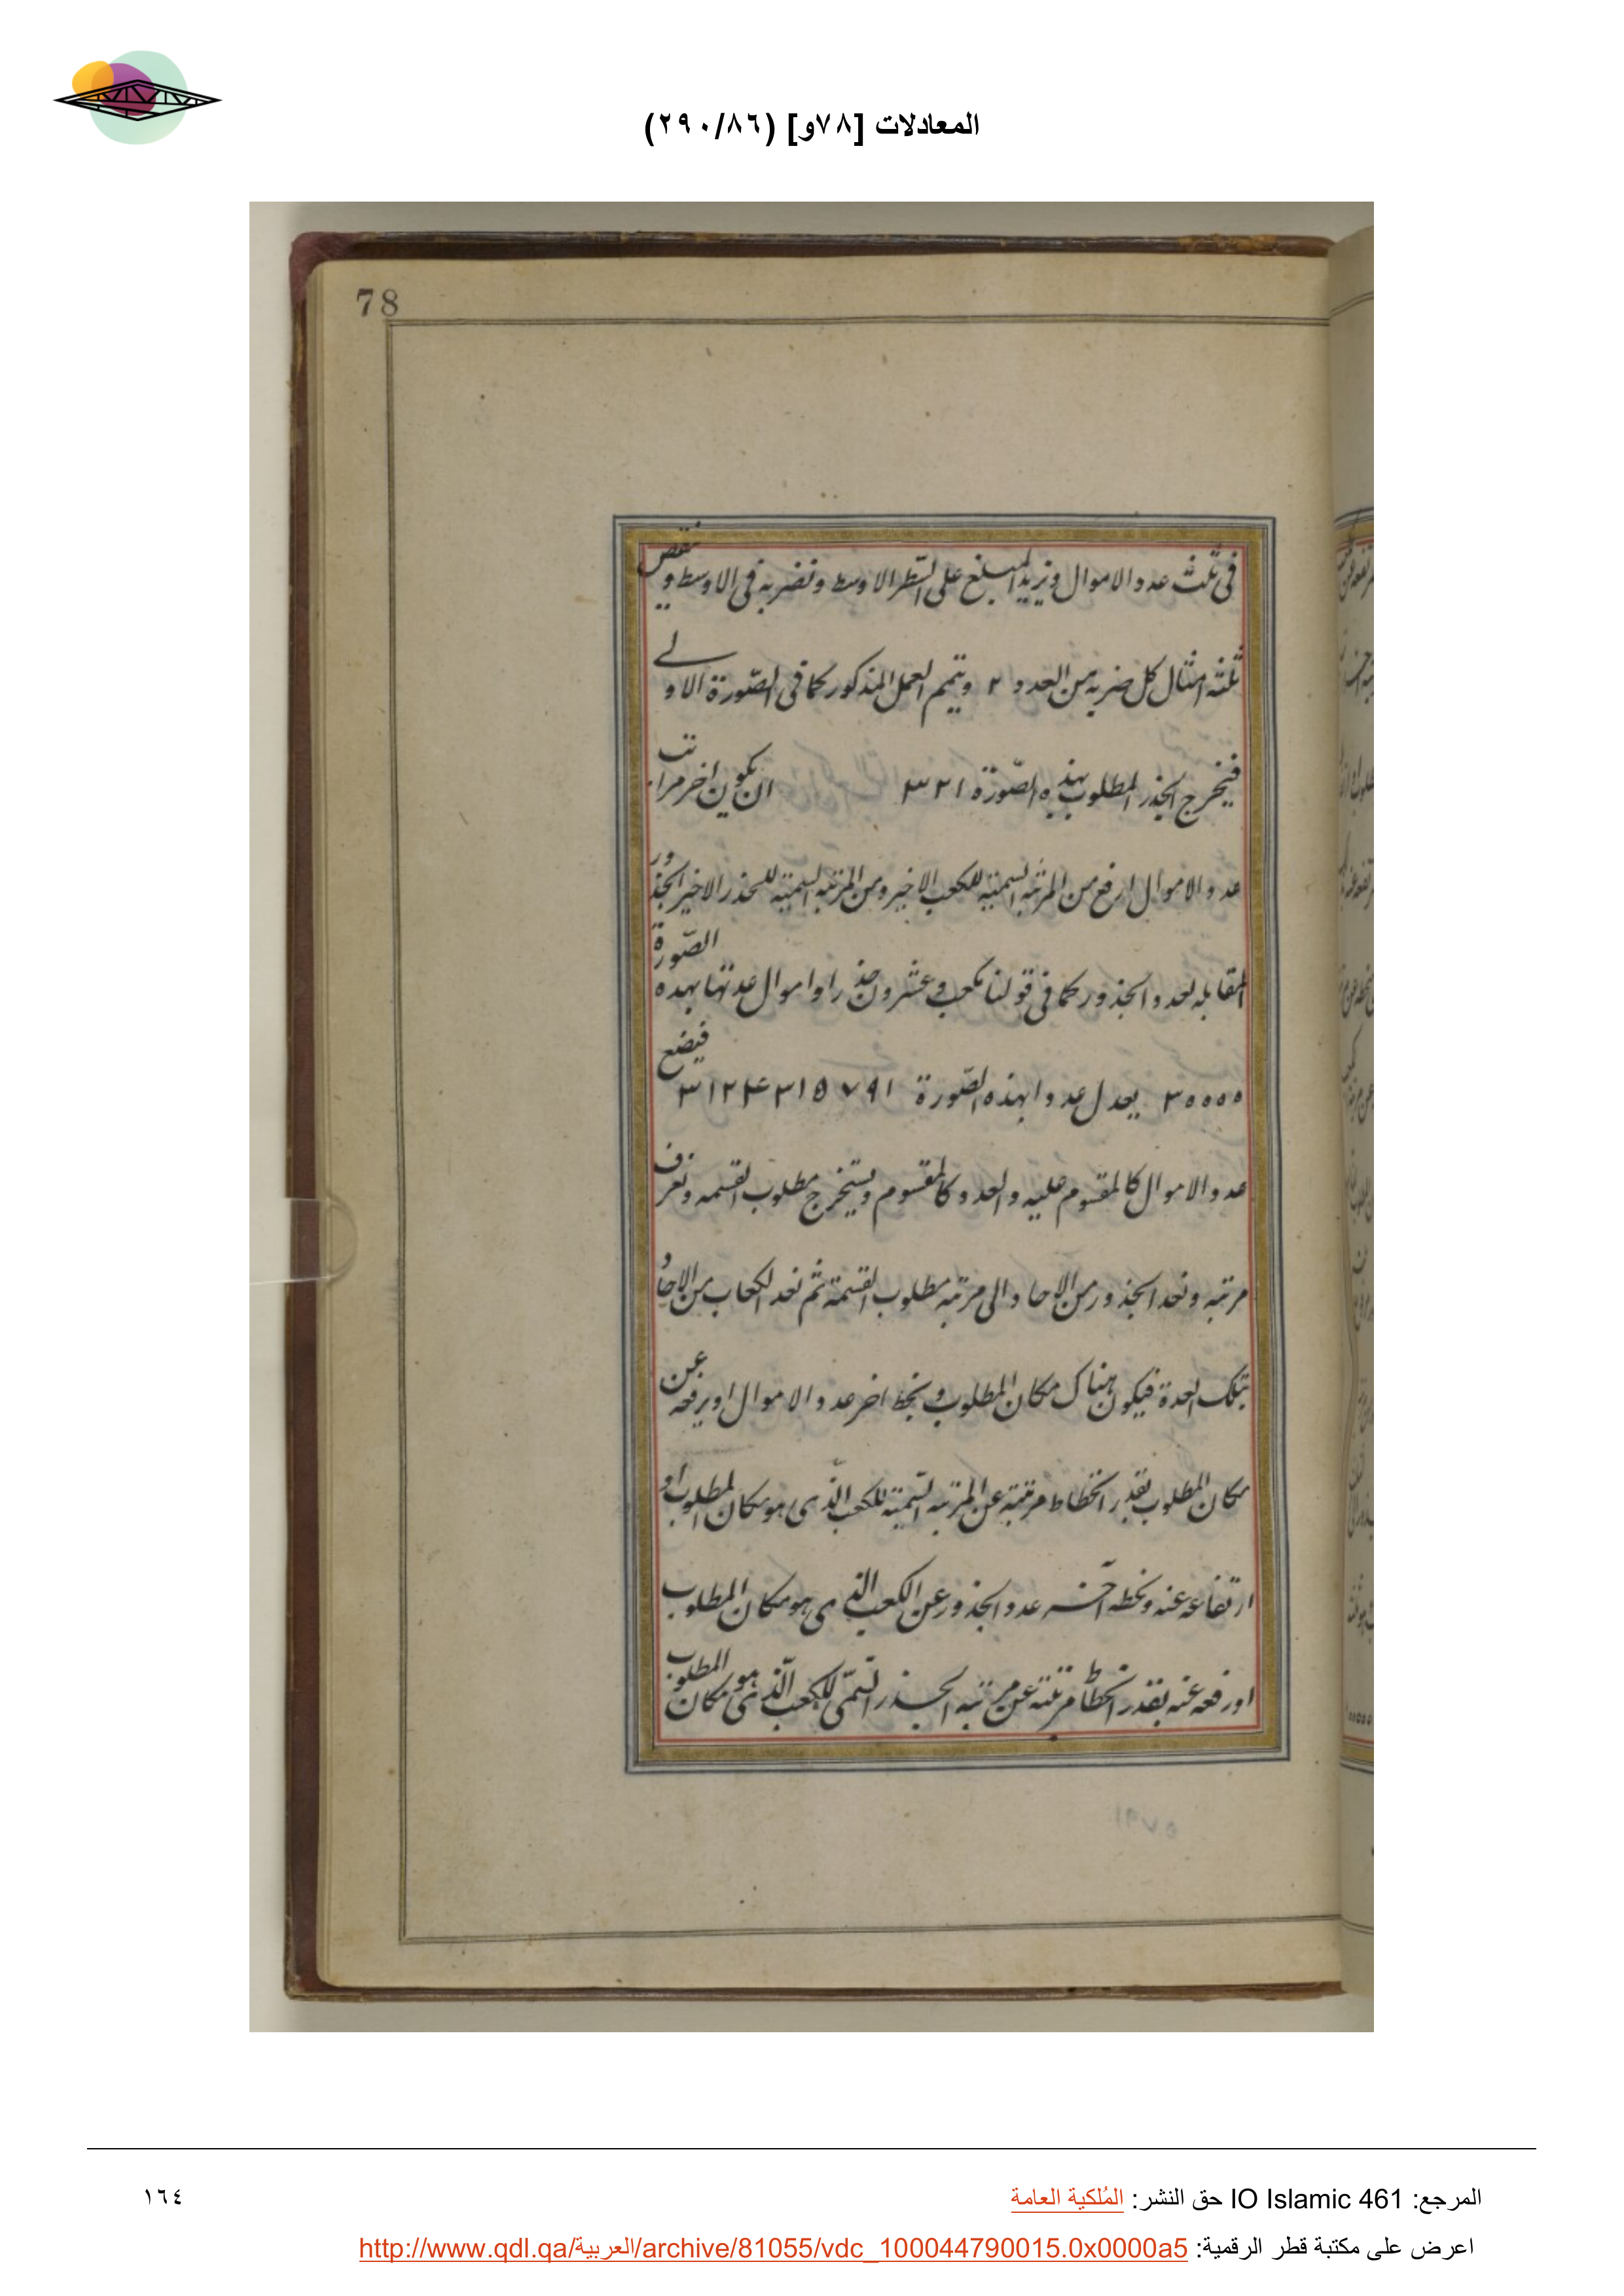 المعادلات [٧٨و] (٢٩٠/٨٦)
78
فى ثلث عدد الاموال ونزيد المبلغ على السّطر الاوسط ونضربه فى الاوسط وينقص
ثلثة امثال كل ضربه من العدد ٢ ويتمم العمل المذكور كما فى الصّورة الاولے
فيخرج الجذر المطلوب بهذه الصّورة ٣٢١ ان يكون اخر مراتب
عدد الاموال ارفع من المرتبه السميّه للكعب الاخير ومن المرتبه السميّه للجذر الاخير الجذور
المقابله لعدد الجذور كما فى قولنا مكعب وعشرون جذرا واموال عدتها بهذه الصّورة
٣٠٠٠٠ يعدل عددا بهذه الصّورة ٣١٢٤٣١٥٧٩١ فيضع
عدد الاموال كالمقسوم عليه والعدد كالمقسوم ويستخرج مطلوب القسمه ونعرف
مرتبه ونعد الجذور من الاحاد الى مرتبه مطلوب القسمة ثم نعد الكعاب من الاحاد
بتلك العدة فيكون هناك مكان المطلوب ونحط اخر عدد الاموال او يرفعه عن
مكان المطلوب بقدر انحطاط مرتبته عن المرتبه السّميّة للكعب الّذى هو مكان المطلوب او
ارتفاعه عنه ونحطه آخر عدد الجذور عن الكعب الذى هو مكان المطلوب
او رفعه عنه بقدر انحطاط مرتبته عن مرتبه الجذر السّمىّ للكعب الّذى هو مكان المطلوب
٥٧٩١
المرجع: IO Islamic 461 حق النشر: المُلكية العامة
١٦٤
اعرض على مكتبة قطر الرقمية: http://www.qdl.qa/العربية/archive/81055/vdc_100044790015.0x0000a5